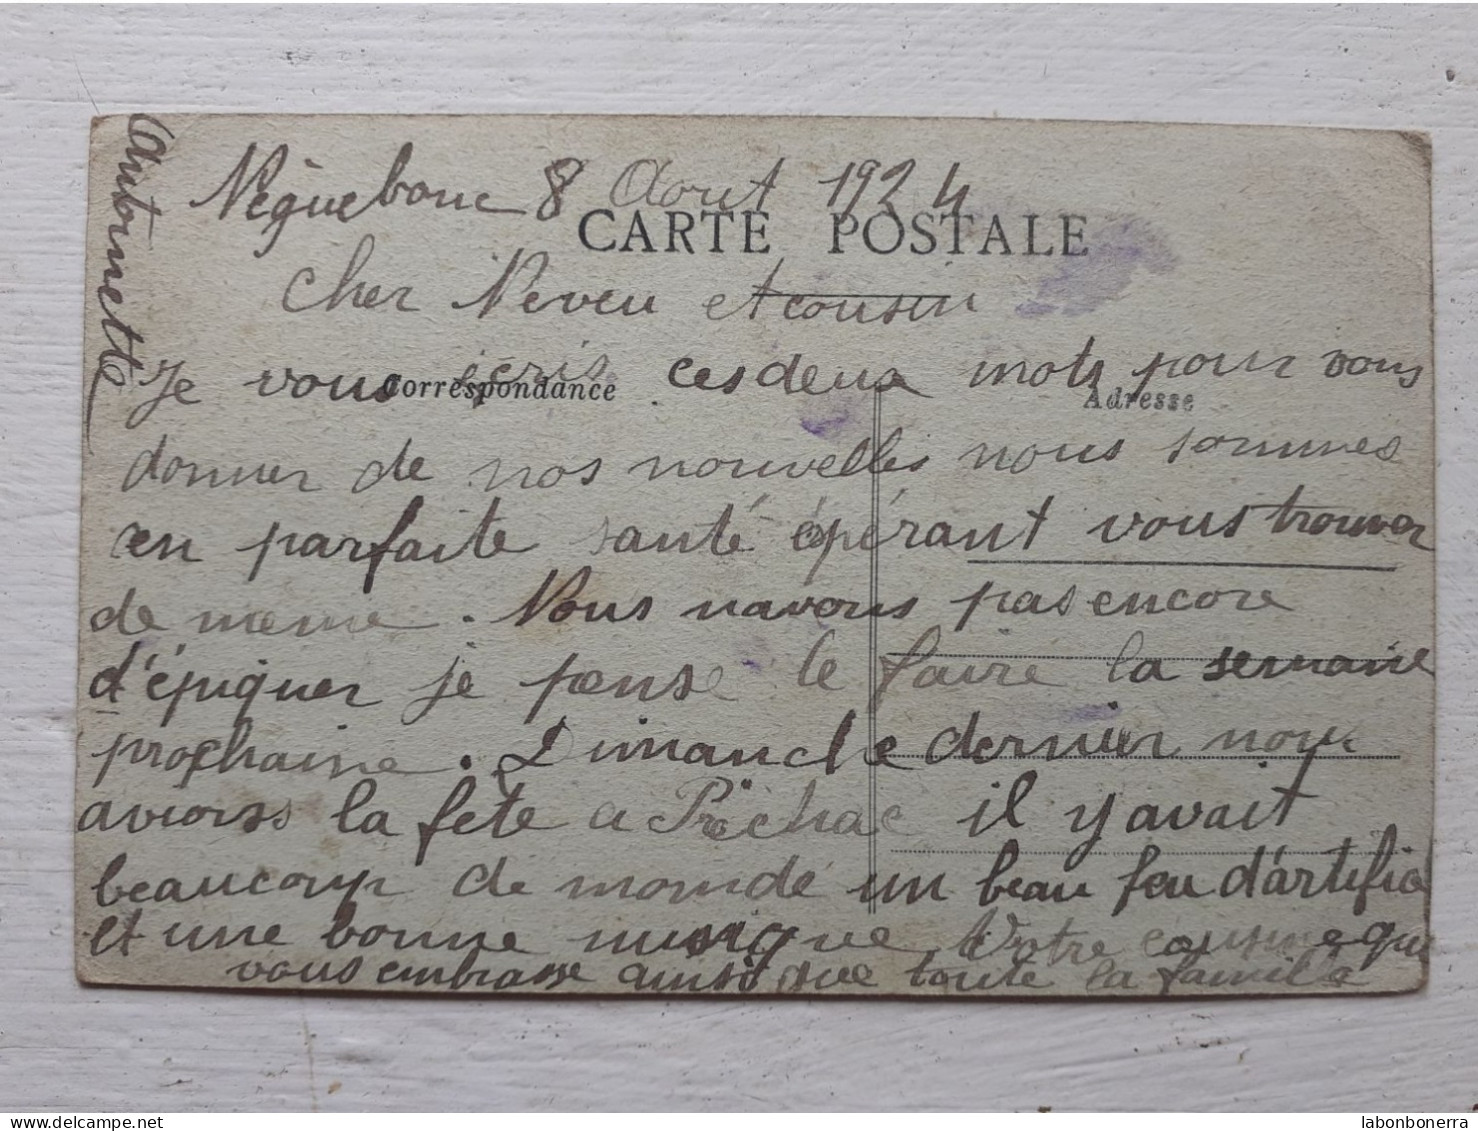 Nèguebouc 8 Aout 1924
CARTE POSTALE
Cher Neveu et cousin
Je vous ecris ces deux mots pour vous
Correspondance
Adresse
donner de nos nouvelles nous sommes
en parfaite santé épérant vous trouver
de meme. Nous navons pas encore
d'épiquer je pense le faire la semaine
prochaine. Dimanche dernier nous
avions la fete a Préchac il y avait
beaucoup de monde un beau feu d'artific
et une bonne musique. Votre cousine qui
vous embrasse ainsi que toute la famille
Antoinette
labonbonerra